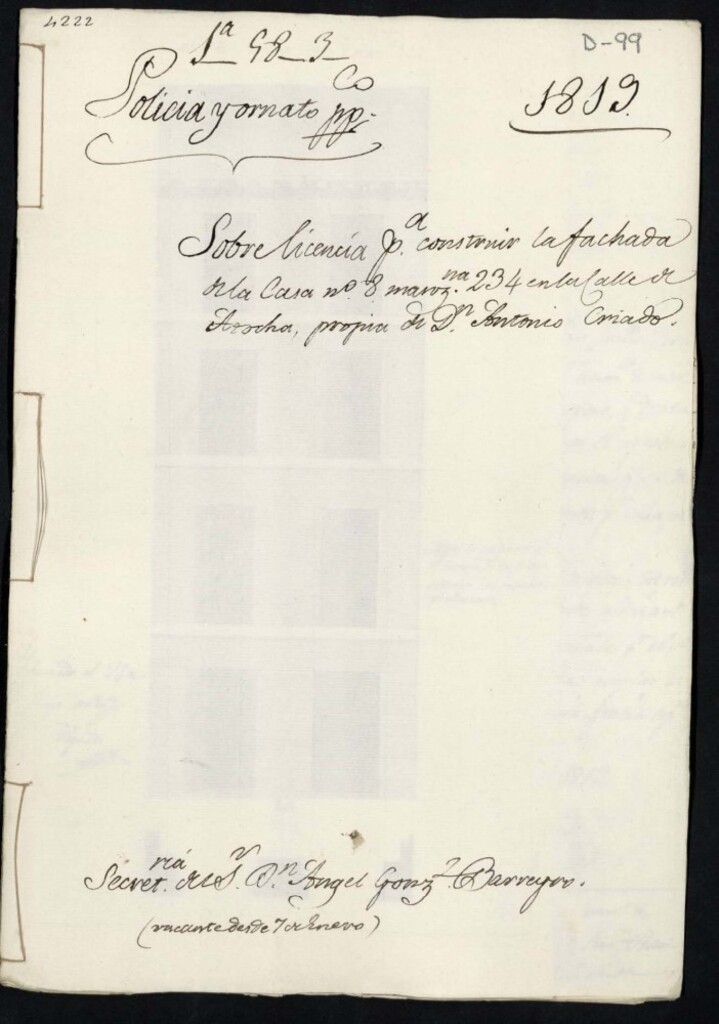 4222
D-99
1ª 58-3
Policia y ornato pp.co
1819.
Sobre licencia p.a construir la fachada
de la Casa nº 8 manz.na 234 en la Calle de
Atocha, propia de D.n Antonio Criado.
Secret.ria del S.r D.n Angel Gonz.z Barreyro.
(vacante desde 7 de Enero)